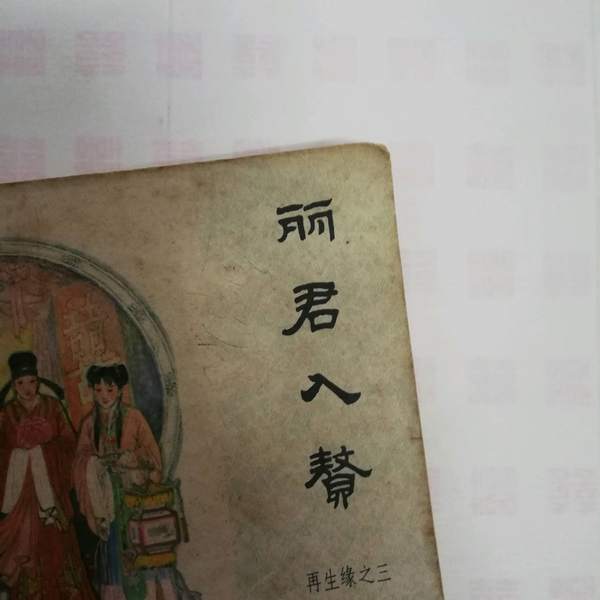 丽君入赘
再生缘之三